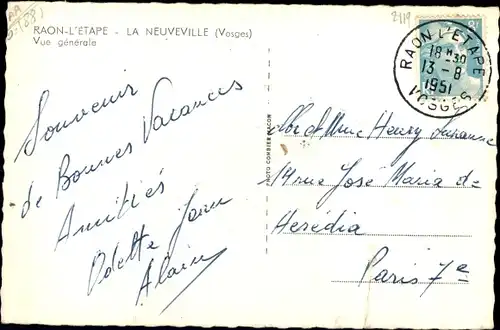 RAON-L'ÉTAPE - LA NEUVEVILLE (Vosges)
Vue générale
2119
RAON-L'ETAPE
18H30
13-8
1951
VOSGES
Souvenir
de Bonnes Vacances
Amitiés
Odette Jean
Alain
PHOTO COMBIER MACON
Mr et Mme Henry Suzanne
14 rue José Maria de
Herédia
Paris 7e